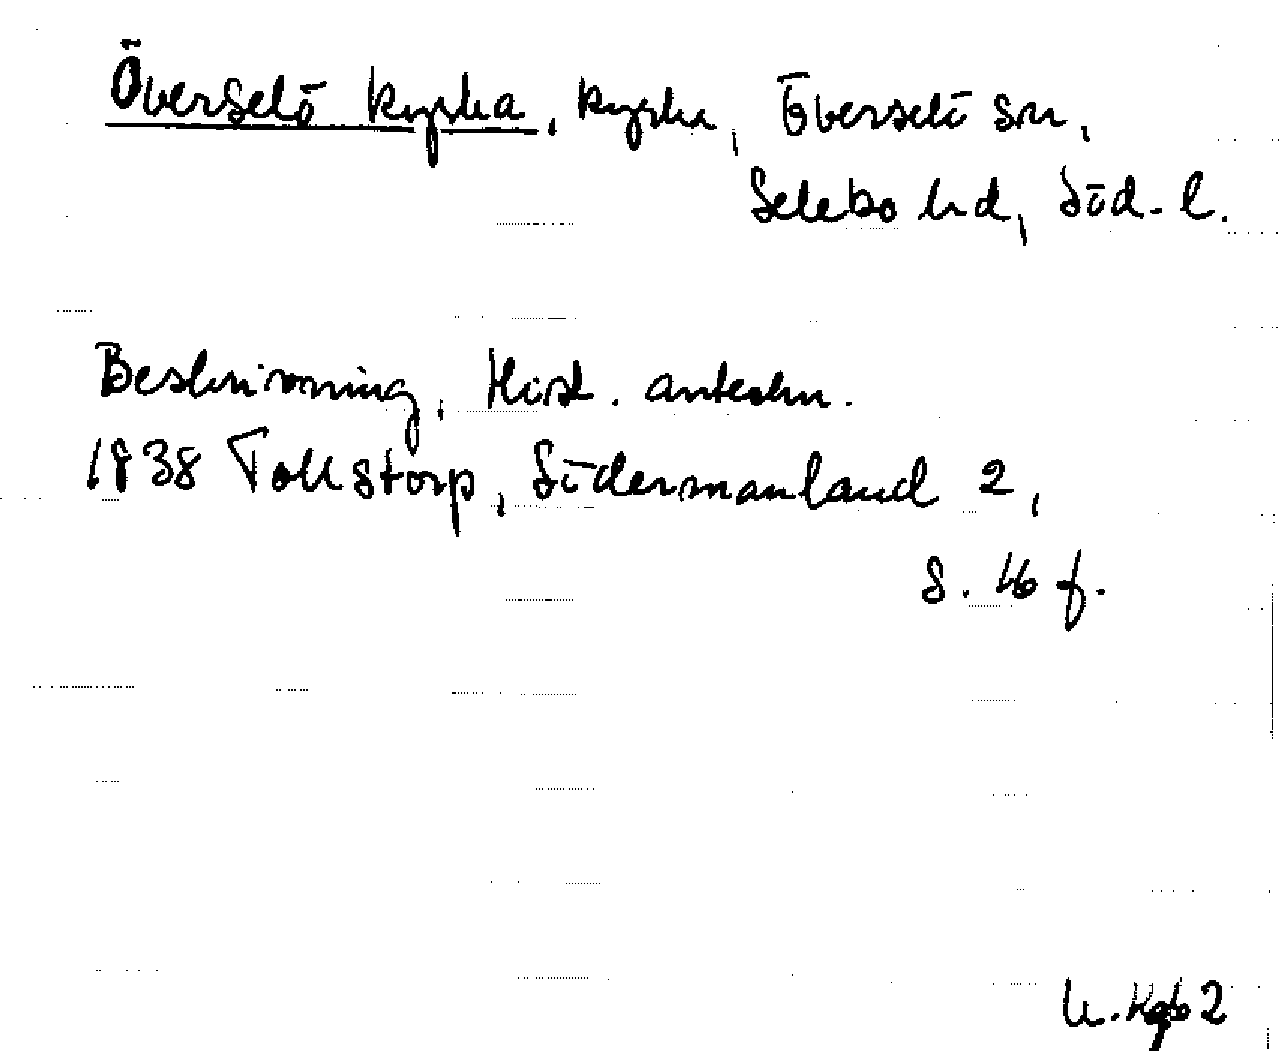 Överselö kyrka, kyrka, Överselö sn,
Selebo hd, Söd. l.
Beskrivning, Hist. anteckn.
1838 Tollstorp, Södermanland 2,
s. 46 f.